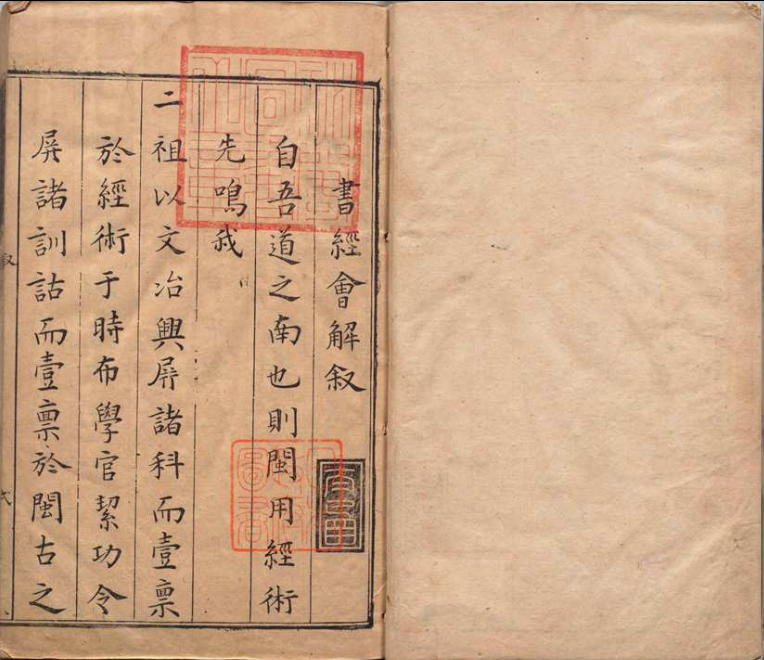 書經會解叙
自吾道之南也則閩用經術
先鳴我
二祖以文治興屏諸科而壹禀
於經術于時布學官絜功令
屏諸訓詁而壹禀於閩古之